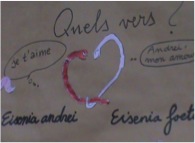 Quels vers ?
je t'aime
Andrei
mon amour
Eisenia andrei
Eisenia foet